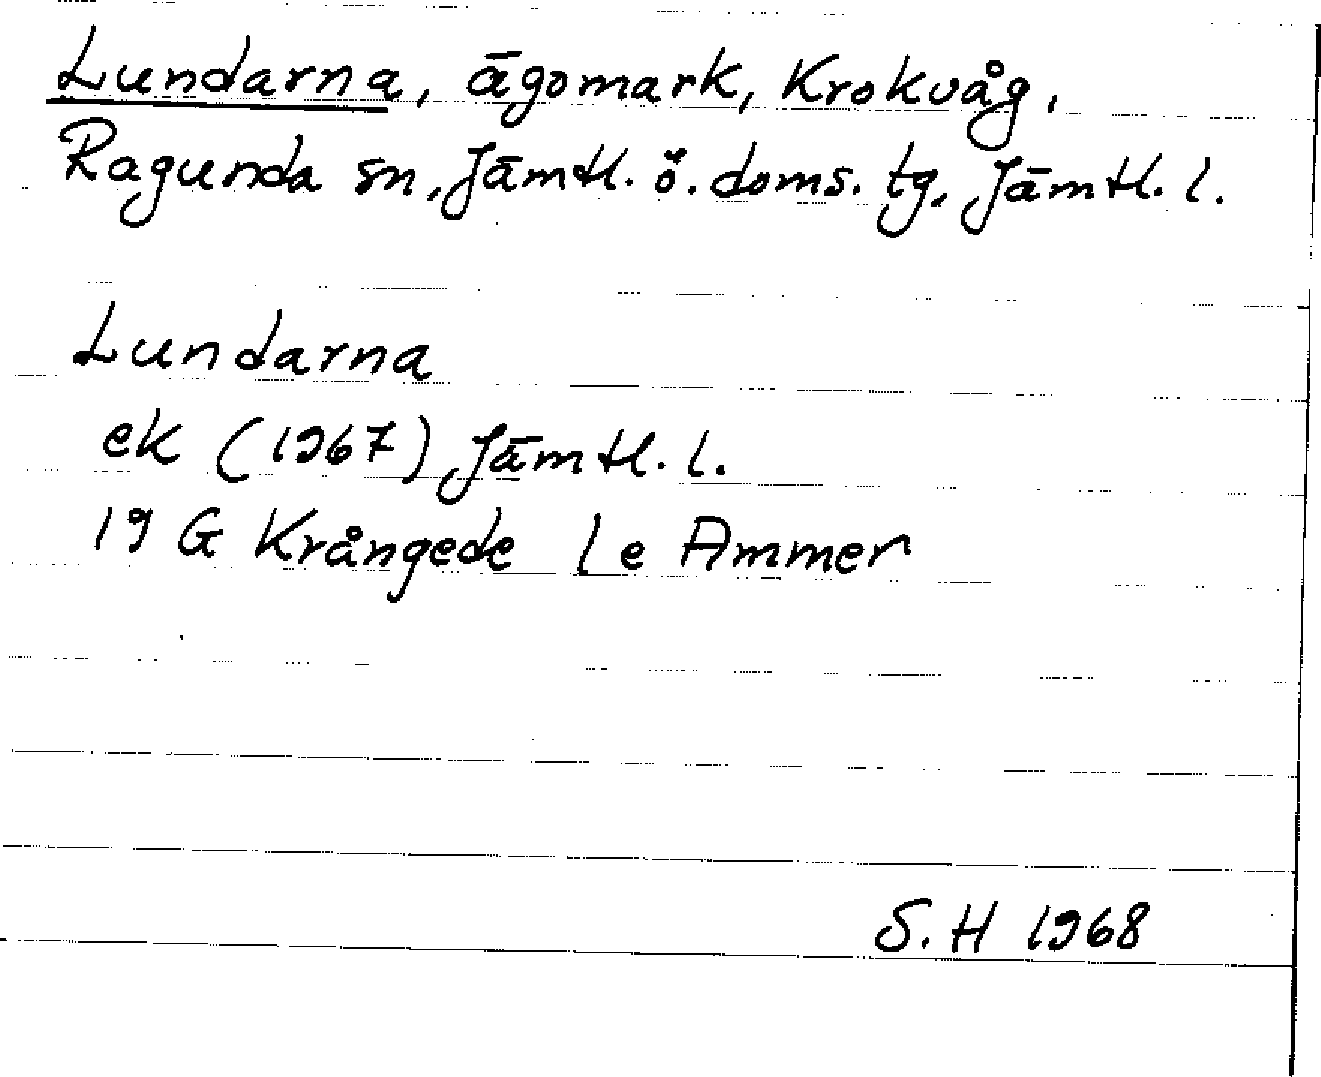 Lundarna, ägomark, Krokvåg,
Ragunda sn, Jämtl. ö. doms. tg, Jämtl. l.
Lundarna
ek (1967) Jämtl. l.
19 G Krångede l e Ammer
S. H 1968